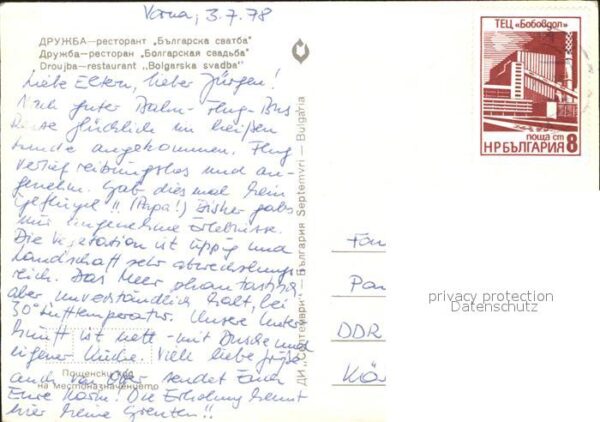 Varna, 3.7.78
ДРУЖБА—ресторант „Българска сватба"
Дружба—ресторан „Болгарская свадьба"
Droujba—restaurant ,,Bolgarska svadba"
Liebe Eltern, lieber Jürgen!
Nach guter Bahn-Flug-Bus
Reise glücklich im heißen
Lande angekommen. Flug
verlief reibungslos und an-
genehm. Gab diesmal kein
Geflügel!! (Papa!) Bisher gabs
nur angenehme Erlebnisse.
Die Vegetation ist üppig und
Landschaft sehr abwechslungs-
reich. Das Meer phantastisch
aber unverständlich kalt, bei
30° Lufttemperatur. Unsere Unter-
kunft ist nett - mit Dusche und
eigener Küche. Viele liebe Grüße
auch von sendet Euch
Eure Karin! Die Erholung kennt
hier keine Grenzen!!
Пощенски код
на местоназначението
ДИ „Септември" — България Septemvri — Bulgaria
ТЕЦ «Бобовдол»
поща ст 8
НР БЪЛГАРИЯ
Fam
DDR
privacy protection
Datenschutz